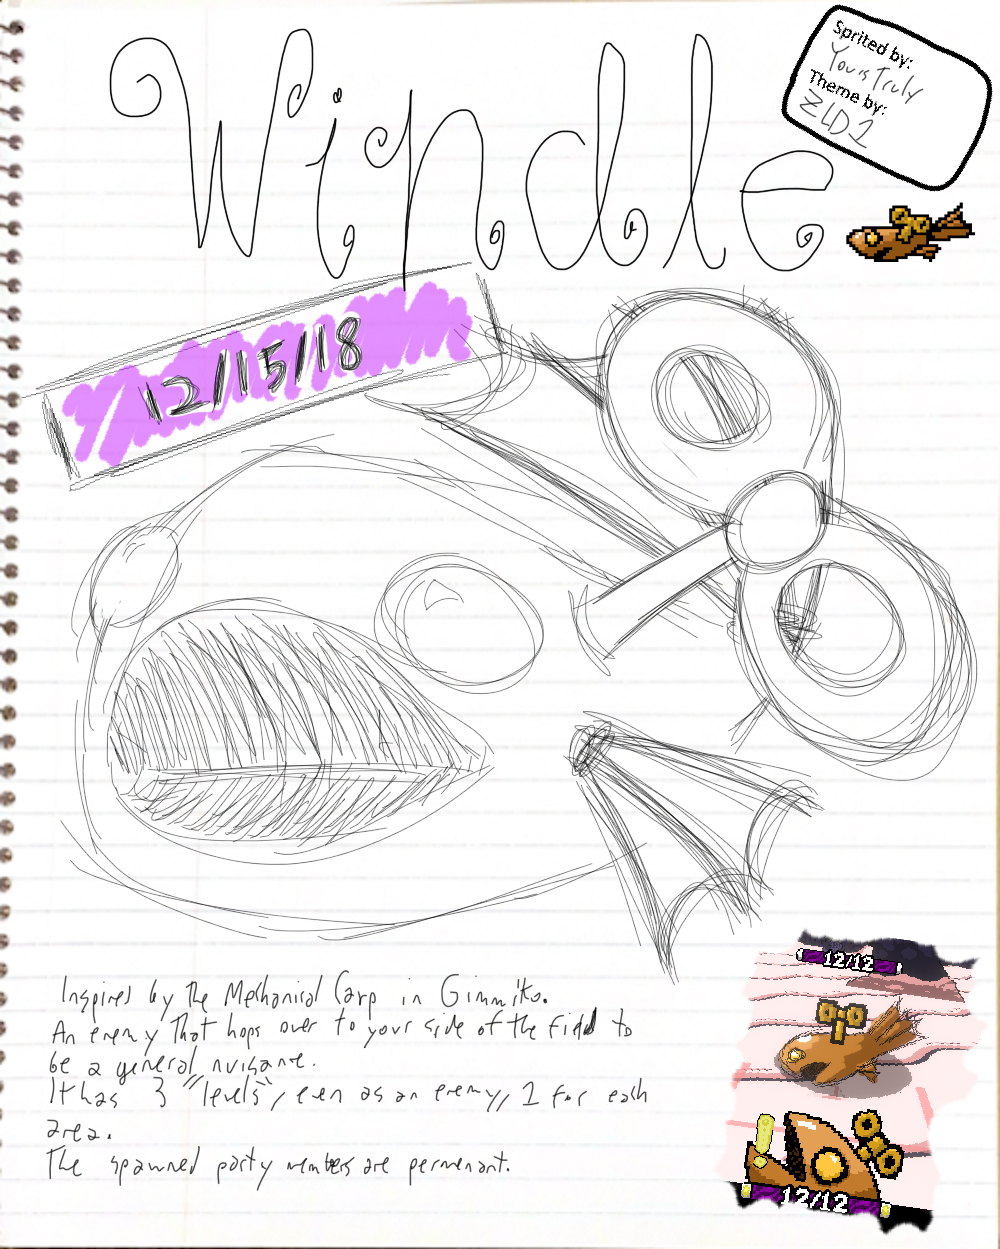 Windle
Sprited by:
Yours Truly
Theme by:
ZLD1
12/15/18
Inspired by the Mechanical Carp in Gimmiko.
An enemy that hops over to your side of the field to
be a general nuisance.
It has 3 "levels", even as an enemy, 1 for each
area.
The spawned party members are permenant.
12/12
12/12